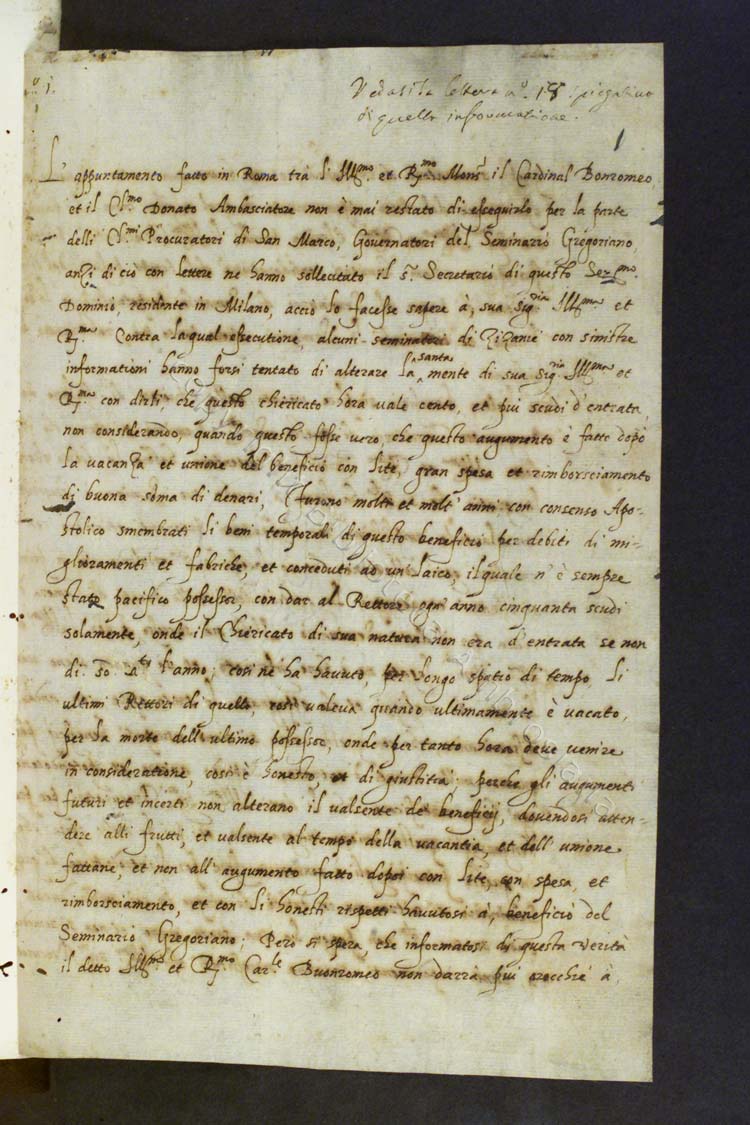 n.º 1.
Vedasi la lettera nº. 18. spiegativa
di quella informatione.
1
L'appuntamento fatto in Roma tra l'Ill.mo et R.mo Mons.r il Cardinal Bonromeo,
et il Cl.mo Donato Ambasciatore non è mai restato di essequirlo per la parte
delli Cl.mi Procuratori di San Marco, Governatori del Seminario Gregoriano,
anzi di ciò con lettere ne hanno sollecitato il s.r Secretario di questo Ser.mo
Dominio, residente in Milano, acciò lo facesse sapere à, sua Sig.ria Ill.ma et
R.ma Contra la qual essecutione, alcuni seminatori di zizanie con sinistre
informationi hanno forsi tentato di alterare la santa mente di sua Sig.ria Ill.ma et
R.ma con dirli, che questo chiericato hora vale cento, et piu scudi d'entrata,
non considerando, quando questo fosse vero, che questo augumento è fatto dopò
la vacanza et unione del beneficio con lite, gran spesa et rimborsciamento
di buona sõma di denari, (furono molti et molt'anni con consenso Apo-
stolico smembrati li beni temporali di questo beneficio per debiti di mi-
glioramenti et fabriche, et conceduti ad un laico, il quale n'è sempre
stato pacifico possessor, con dar al Rettore ogn'anno cinquanta scudi
solamente, onde il Chiericato di sua natura non era d'entrata se non
di 50 s.ti l'anno; cosi nè ha havuto, per longo spatio di tempo, li
ultimi Rettori di quello, cosi valeva quando ultimamente è vacato,
per la morte dell'ultimo possessor, onde per tanto hora deve venire
in consideratione, cosi è honesto, et di giustitia: perche gli augumenti
futuri et incerti non alterano il valsente de beneficij, dovendosi atten-
dere alli frutti, et valsente al tempo della vacantia, et dell'unione
fattane, et non all'augumento fatto dopoi con lite, con spesa, et
rimborsciamento, et con li honesti rispetti havutosi à, beneficio del
Seminario Gregoriano; Però si spera, che informatosi di questa verità
il detto Ill.mo et R.mo Car.le Buonromeo non darra piu orecchie à,